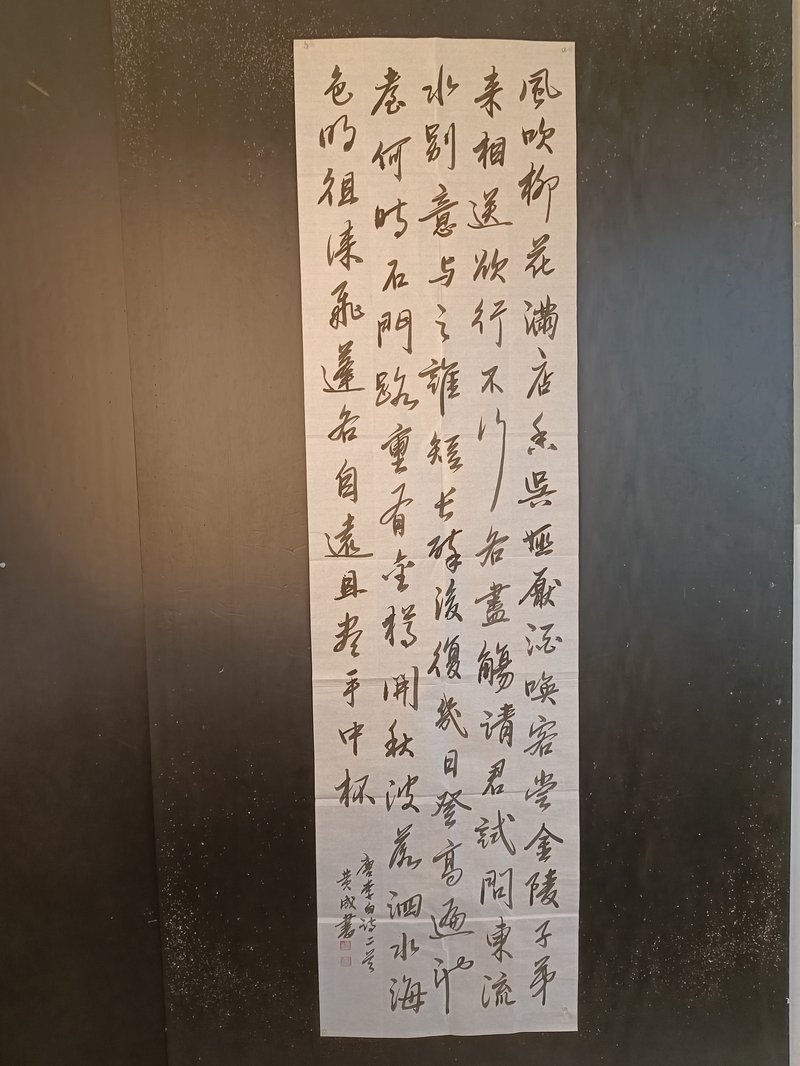 風吹柳花滿店香吳姬厭酒喚客嘗金陵子弟
来相送欲行不行各盡觴請君試問東流
水別意与之誰短長醉後復幾日登高遍池
臺何時石門路重有金樽開秋波落泗水海
色明徂徠飛蓬各自遠且尽手中杯
唐李白詩二首
黄成書